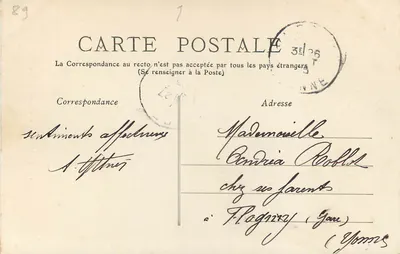 89
1
CARTE POSTALE
La Correspondance au recto n'est pas acceptée par tous les pays étrangers
(Se renseigner à la Poste)
Correspondance
Adresse
sentiments affectueux
Mademoiselle
Andréa Roblot
chez ses parents
à Flogny (Gare)
(Yonne)